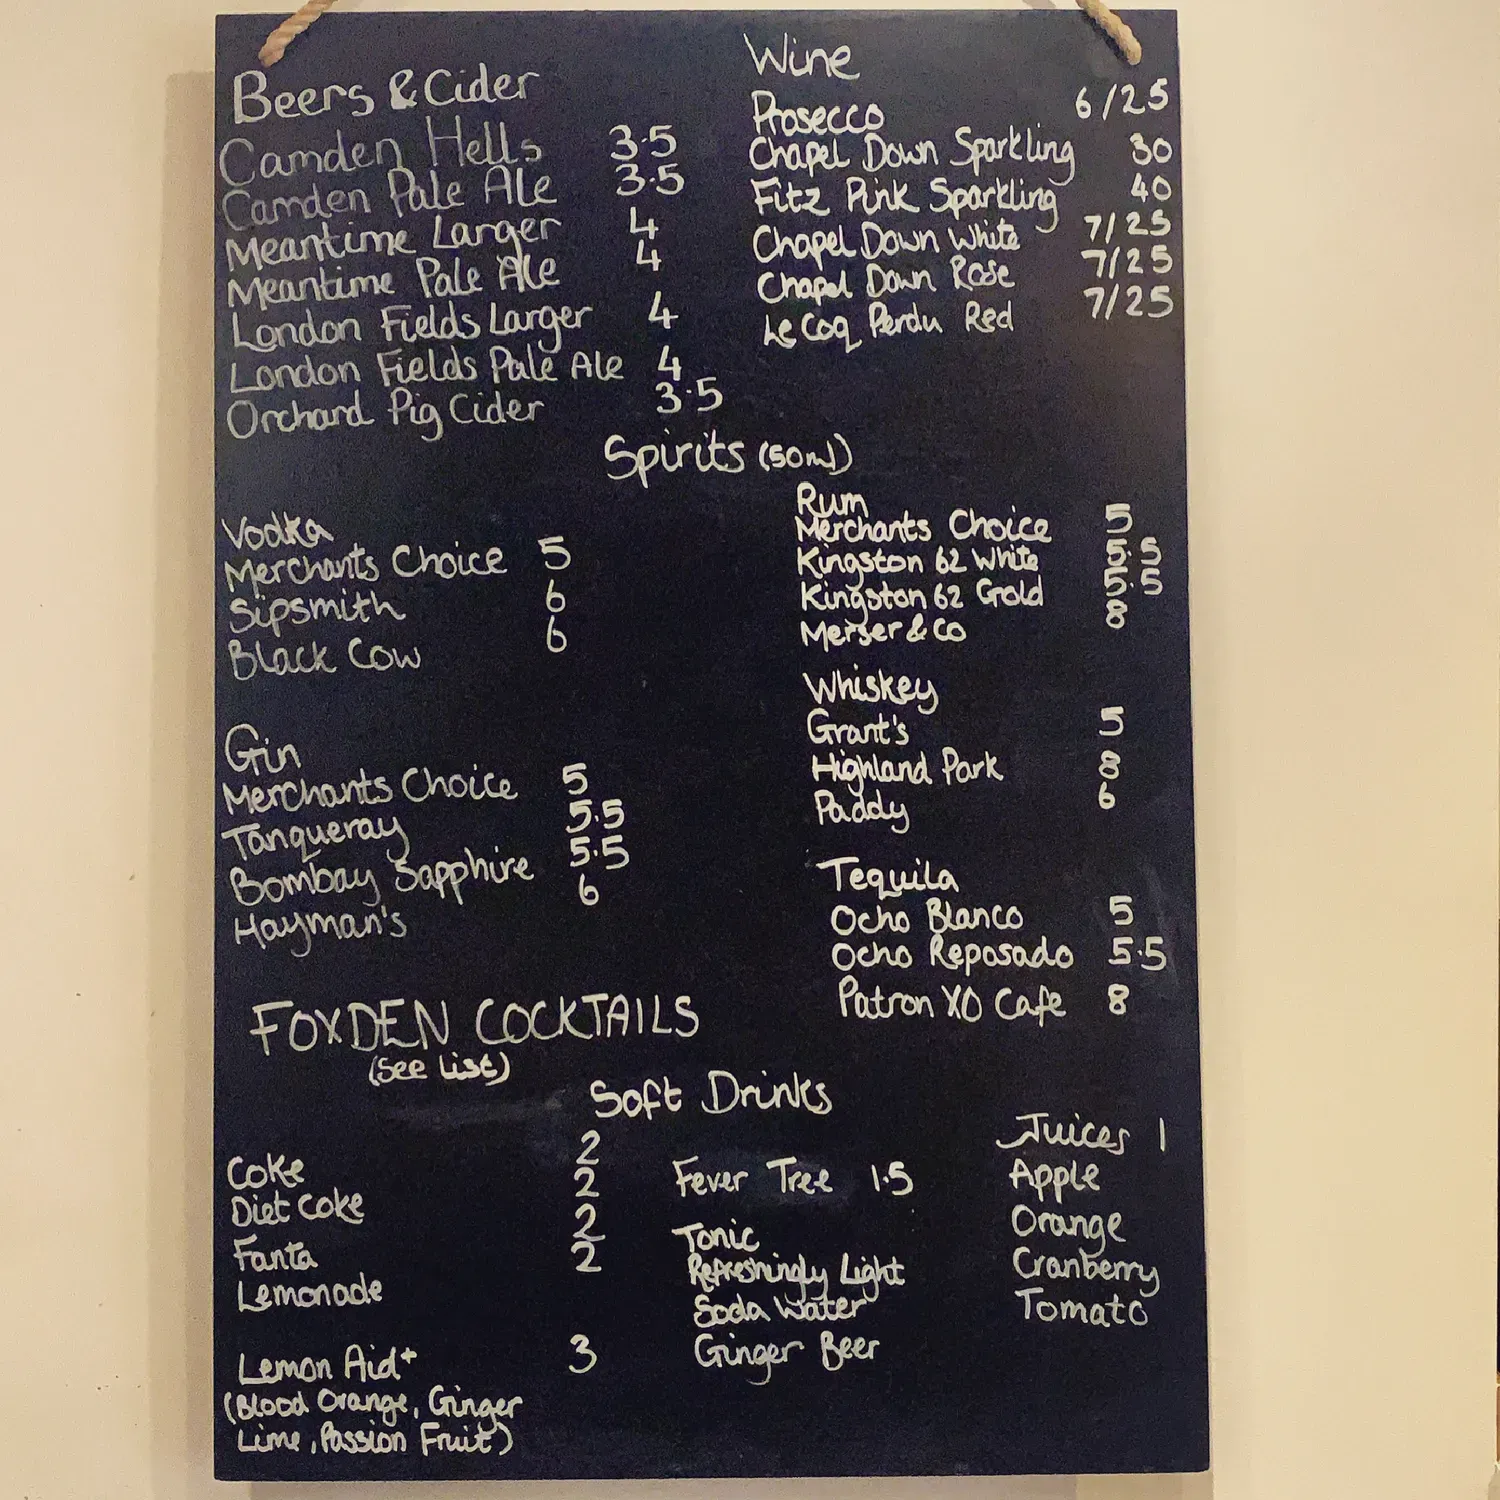 Beers & Cider
Camden Hells 3.5
Camden Pale Ale 3.5
Meantime Larger 4
Meantime Pale Ale 4
London Fields Larger 4
London Fields Pale Ale 4
Orchard Pig Cider 3.5
Wine
Prosecco 6/25
Chapel Down Sparkling 30
Fitz Pink Sparkling 40
Chapel Down White 7/25
Chapel Down Rose 7/25
Le Coq Perdu Red 7/25
Spirits (50ml)
Vodka
Merchants Choice 5
Sipsmith 6
Black Cow 6
Gin
Merchants Choice 5
Tanqueray 5.5
Bombay Sapphire 5.5
Hayman's 6
Rum
Merchants Choice 5
Kingston 62 White 5.5
Kingston 62 Gold 5.5
Merser & Co 8
Whiskey
Grant's 5
Highland Park 8
Paddy 6
Tequila
Ocho Blanco 5
Ocho Reposado 5.5
Patron XO Cafe 8
FOXDEN COCKTAILS
(See List)
Soft Drinks
Coke 2
Diet Coke 2
Fanta 2
Lemonade 2
Lemon Aid+ 3
(Blood Orange, Ginger
Lime, Passion Fruit)
Fever Tree 1.5
Tonic
Refreshingly Light
Soda Water
Ginger Beer
Juices 1
Apple
Orange
Cranberry
Tomato